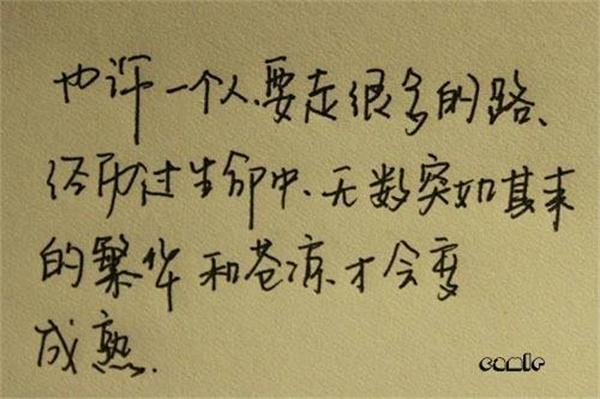 也许一个人、要走很多的路、
经历过生命中、无数突如其来
的繁华和苍凉、才会变
成熟.
camlr